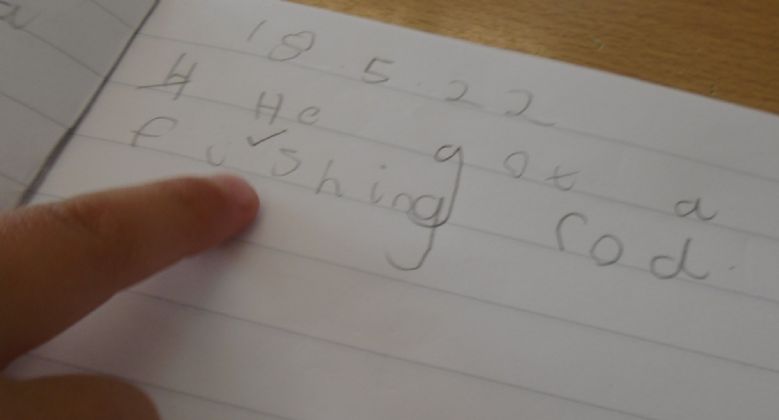 18.5.22
H He got a
fishing rod.